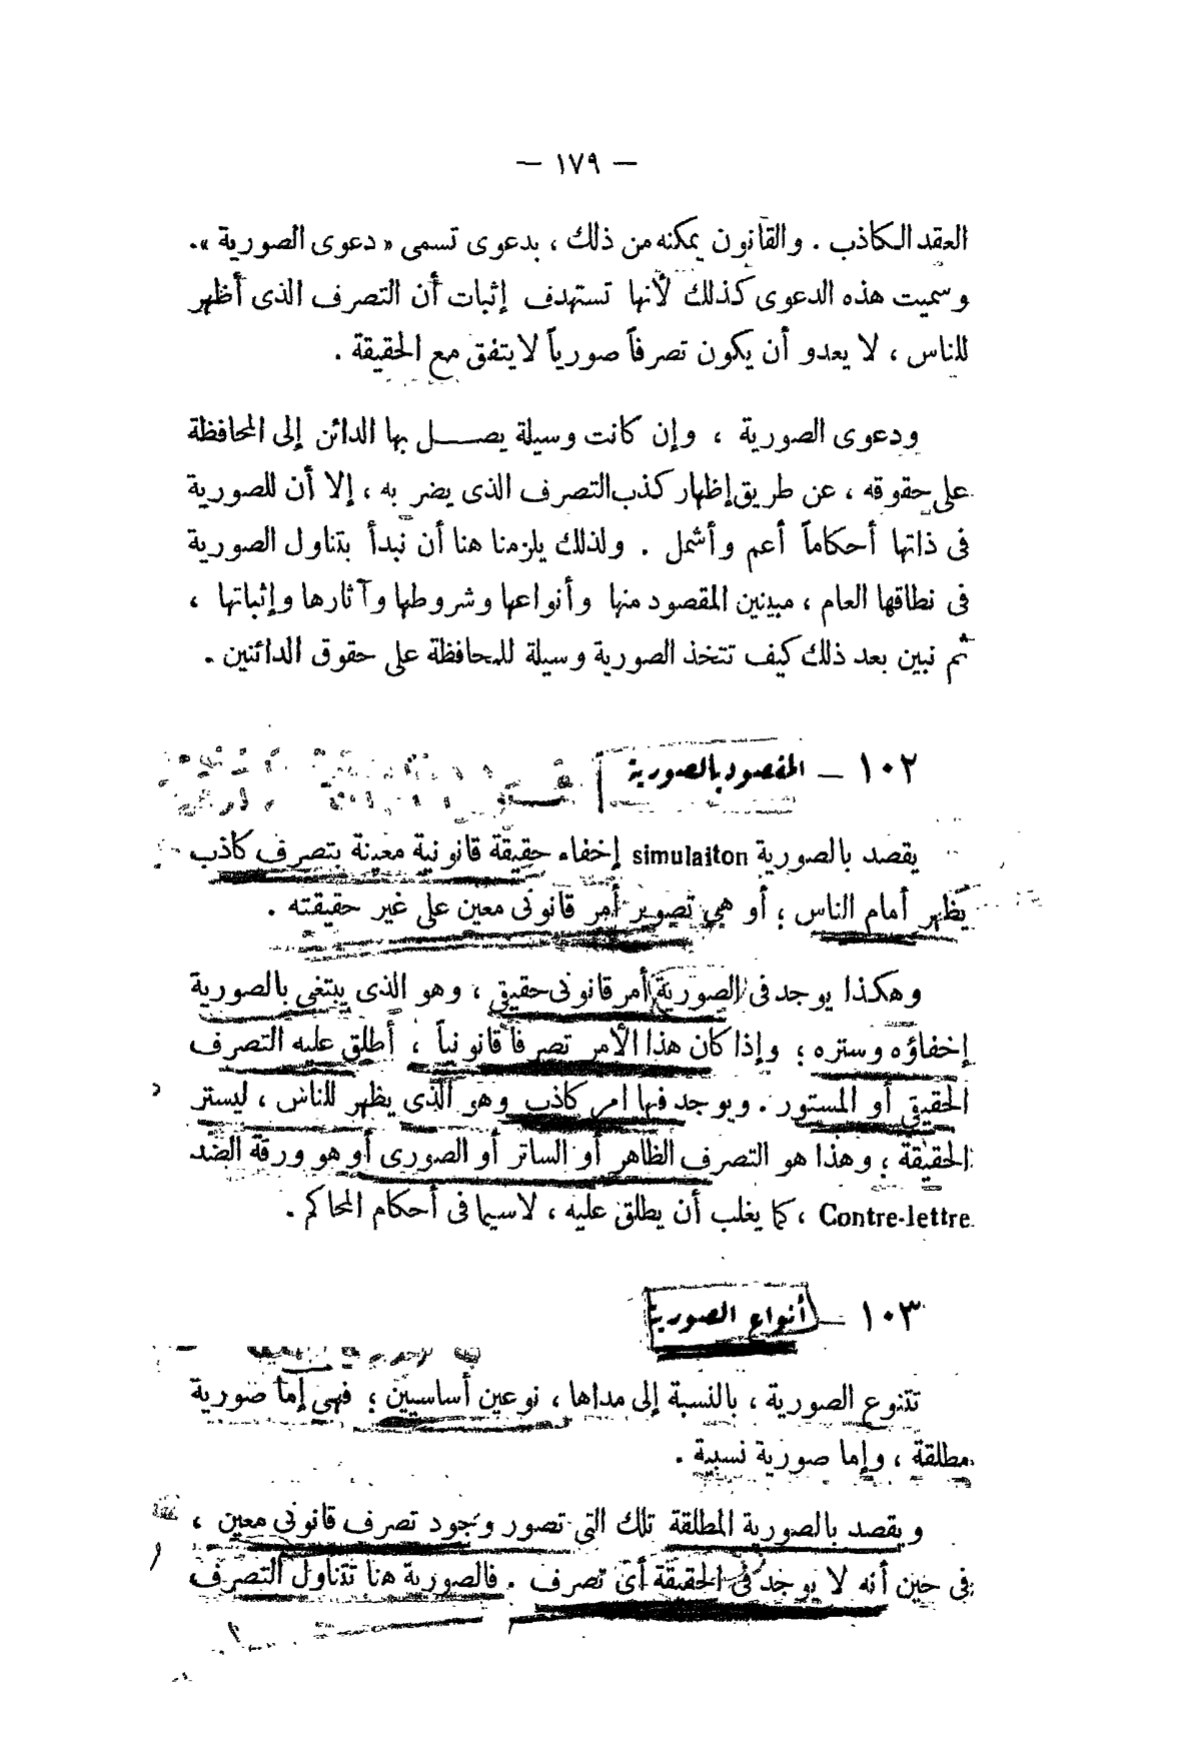 — ١٧٩ —
العقد الكاذب . والقانون يمكنه من ذلك ، بدعوى تسمى « دعوى الصورية ».
وسميت هذه الدعوى كذلك لأنها تستهدف إثبات أن التصرف الذى أظهر
للناس ، لا يعدو أن يكون تصرفاً صورياً لا يتفق مع الحقيقة .
ودعوى الصورية ، وإن كانت وسيلة يصــل بها الدائن إلى المحافظة
على حقوقه ، عن طريق إظهار كذب التصرف الذى يضر به ، إلا أن للصورية
فى ذاتها أحكاماً أعم وأشمل . ولذلك يلزمنا هنا أن نبدأ بتناول الصورية
فى نطاقها العام ، مبينين المقصود منها وأنواعها وشروطها وآثارها وإثباتها ،
ثم نبين بعد ذلك كيف تتخذ الصورية وسيلة للمحافظة على حقوق الدائنين .
١٠٢ — المقصود بالصورية
يقصد بالصورية simulaiton إخفاء حقيقة قانونية معينة بتصرف كاذب
يظهر أمام الناس ؛ أو هى تصوير أمر قانونى معين على غير حقيقته .
وهكذا يوجد فى الصورية أمر قانونى حقيقى ، وهو الذى يبتغى بالصورية
إخفاؤه وستره ؛ وإذا كان هذا الأمر تصرفاً قانونياً ، أطلق عليه التصرف
الحقيقى أو المستور . ويوجد فيها امر كاذب وهو الذى يظهر للناس ، ليستر
الحقيقة ؛ وهذا هو التصرف الظاهر أو الساتر أو الصورى أو هو ورقة الضد
Contre-lettre ، كما يغلب أن يطلق عليه ، لاسيما فى أحكام المحاكم .
١٠٣ — أنواع الصورية
تتنوع الصورية ، بالنسبة إلى مداها ، نوعين أساسيين ؛ فهى إما صورية
مطلقة ، وإما صورية نسبية .
ويقصد بالصورية المطلقة تلك التى تصور وجود تصرف قانونى معين ،
فى حين أنه لا يوجد فى الحقيقة أى تصرف . فالصورية هنا تتناول التصرف